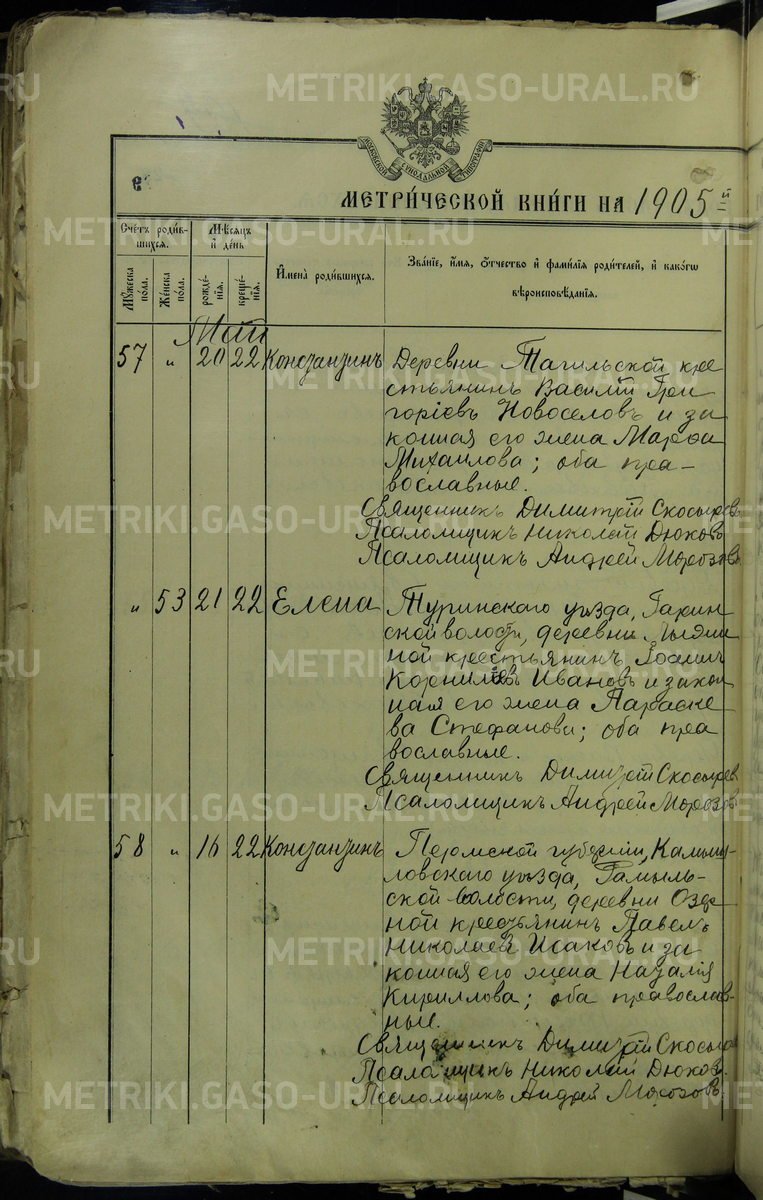 METRIKI.GASO-URAL.RU
МОСКОВСКОЙ СѴНОДАЛЬНОЙ ТИПОГРАФІИ
МЕТРИ́ЧЕСКОЙ КНИ́ГИ НА 1905й
Счетъ роди́вшихся.
Мѣ́сяцъ и́ день
И҆мена̀ роди́вшихся.
Зва́ніе, и҆́мя, ѻ҆́тчество и҆ фами́лія роди́телей, и҆ како́гѡ вѣроисповѣ́данія.
Мꙋ́жеска по́ла.
Же́нска по́ла.
рожде́нія.
креще́нія.
Май
57 " 20 22 Константинъ Деревни Тагильской кре
стьянинъ Василій Гри
горіевъ Новоселовъ и за
конная его жена Марѳа
Михаилова; оба пра-
вославные.
Священникъ Димитрій Скосыревъ
Псаломщикъ Николай Дюковъ
Псаломщикъ Андрей Морозовъ
" 53 21 22 Елена Туринскаго уѣзда, Гарин
ской волости, деревни
ной крестьянинъ Іоаннъ
Корниліевъ Ивановъ и закон
ная его жена Параске
ва Стефанова; оба пра
вославные.
Священникъ Димитрій Скосырев
Псаломщикъ Андрей Морозов
58 " 16 22 Константинъ Пермской губерніи, Камыш-
ловскаго уѣзда,
ской волости, деревни Озер
ной крестьянинъ Павелъ
Николаевъ Исаковъ и за
конная его жена Наталія
Кириллова; оба православ-
ные.
Священникъ Димитрій Скосырев
Псаломщикъ Николай Дюков.
Псаломщикъ Андрей Морозовъ